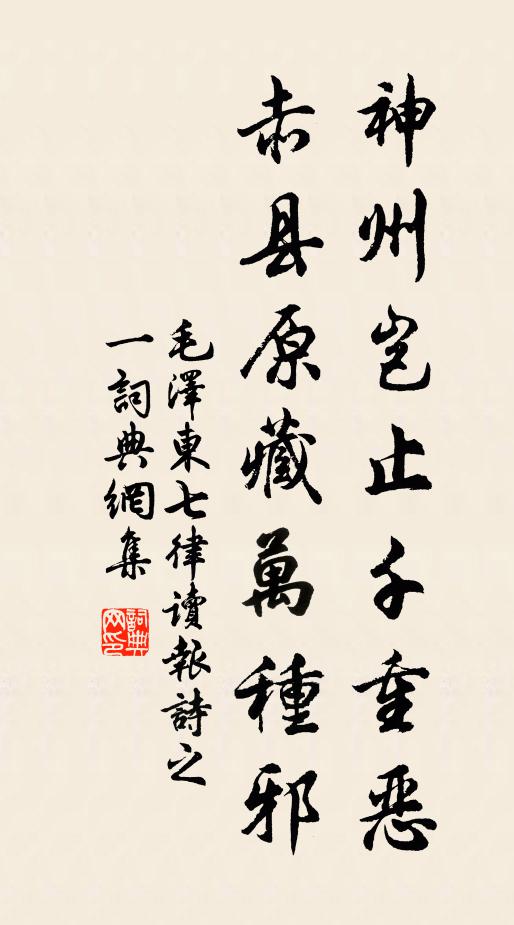 神州岂止千重恶
赤县原藏萬種邪
毛澤東七律读報詩之
一詞典網集
詞典网印